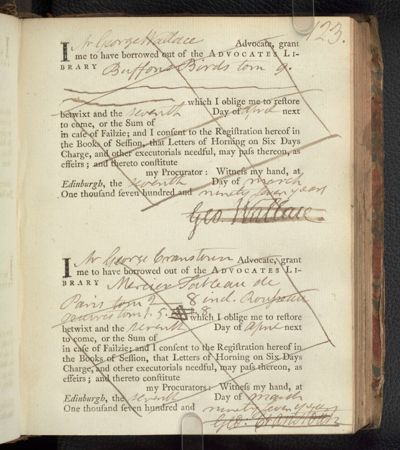 123.
I Mr George Wallace Advocate, grant
me to have borrowed out of the ADVOCATES LI-
BRARY Buffons Birds tom 9.
which I oblige me to restore
betwixt and the seventh Day of April next
to come, or the Sum of
in case of Failzie; and I consent to the Registration hereof in
the Books of Session, that Letters of Horning on Six Days
Charge, and other executorials needful, may pass thereon, as
effeirs; and thereto constitute
my Procurator: Witness my hand, at
Edinburgh, the seventh Day of march
One thousand seven hundred and ninety seven years
Geo. Wallace.
I Mr George Cranstoun Advocate, grant
me to have borrowed out of the ADVOCATES LI-
BRARY Mercier Tableau de
Paris tom 2 8 ind. Rousseau
oeuvres tom 1. 5. 8
which I oblige me to restore
betwixt and the seventh Day of April next
to come, or the Sum of
in case of Failzie; and I consent to the Registration hereof in
the Books of Session, that Letters of Horning on Six Days
Charge, and other executorials needful, may pass thereon, as
effeirs; and thereto constitute
my Procurators: Witness my hand, at
Edinburgh, the seventh Day of march
One thousand seven hundred and ninety seven years
Geo. Cranstoun